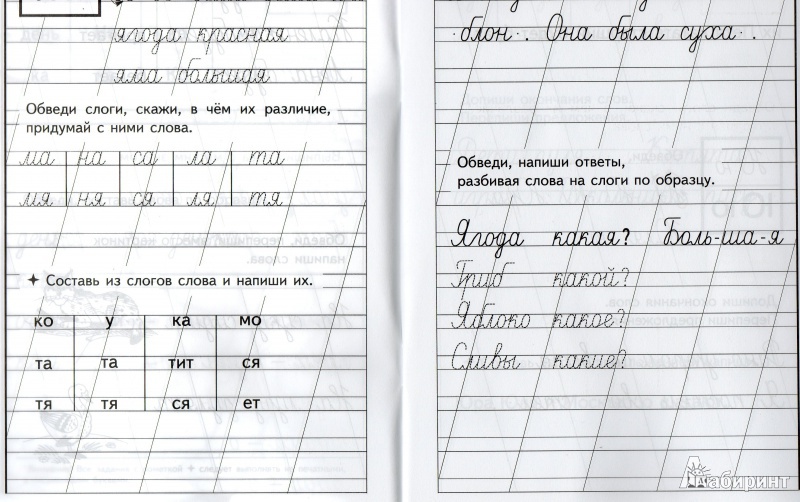 ягода красная
яма большая
Обведи слоги, скажи, в чём их различие,
придумай с ними слова.
ма на са ла та
мя ня ся ля тя
✦ Составь из слогов слова и напиши их.
ко у ка мо
та та тит ся
тя тя ся ет
блон. Она была суха .
Обведи, напиши ответы,
разбивая слова на слоги по образцу.
Ягода какая? Боль-ша-я
Гриб какой?
Яблоко какое?
Сливы какие?
Лабиринт